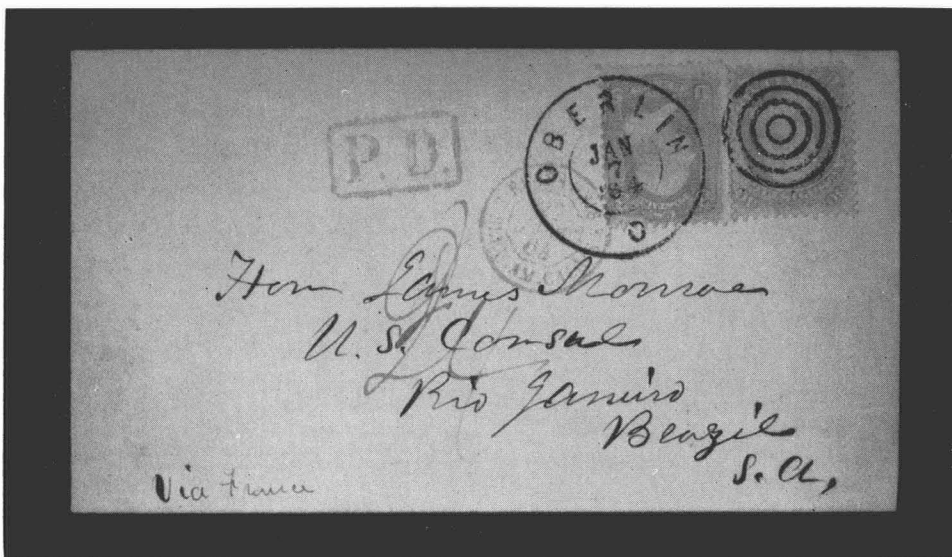 P. D.
OBERLIN
JAN
7
64
O
Hon James Monroe
U. S. Consul
Rio Janeiro
Brazil
S. A,
Via France